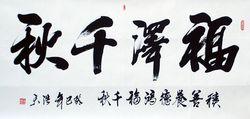 福澤千秋
積善養德鴻福千秋 巳年